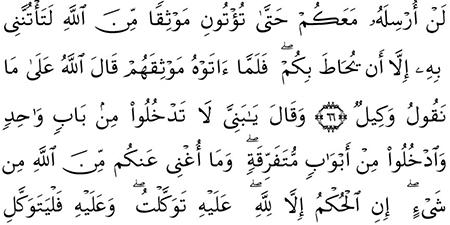 لَنْ أُرْسِلَهُۥ مَعَكُمْ حَتَّىٰ تُؤْتُونِ مَوْثِقًا مِّنَ ٱللَّهِ لَتَأْتُنَّنِى
بِهِۦٓ إِلَّآ أَن يُحَاطَ بِكُمْ ۖ فَلَمَّآ ءَاتَوْهُ مَوْثِقَهُمْ قَالَ ٱللَّهُ عَلَىٰ مَا
نَقُولُ وَكِيلٌ ۝٦٦ وَقَالَ يَـٰبَنِىَّ لَا تَدْخُلُوا۟ مِنۢ بَابٍ وَٰحِدٍ
وَٱدْخُلُوا۟ مِنْ أَبْوَٰبٍ مُّتَفَرِّقَةٍ ۖ وَمَآ أُغْنِى عَنكُم مِّنَ ٱللَّهِ مِن
شَىْءٍ ۖ إِنِ ٱلْحُكْمُ إِلَّا لِلَّهِ ۖ عَلَيْهِ تَوَكَّلْتُ ۖ وَعَلَيْهِ فَلْيَتَوَكَّلِ